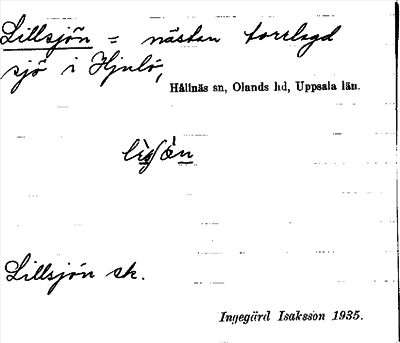 Lillsjön = nästan torrlagd
sjö i Hjulö,
Hållnäs sn, Olands hd, Uppsala län.
Lillsjön sk.
Ingegärd Isaksson 1935.